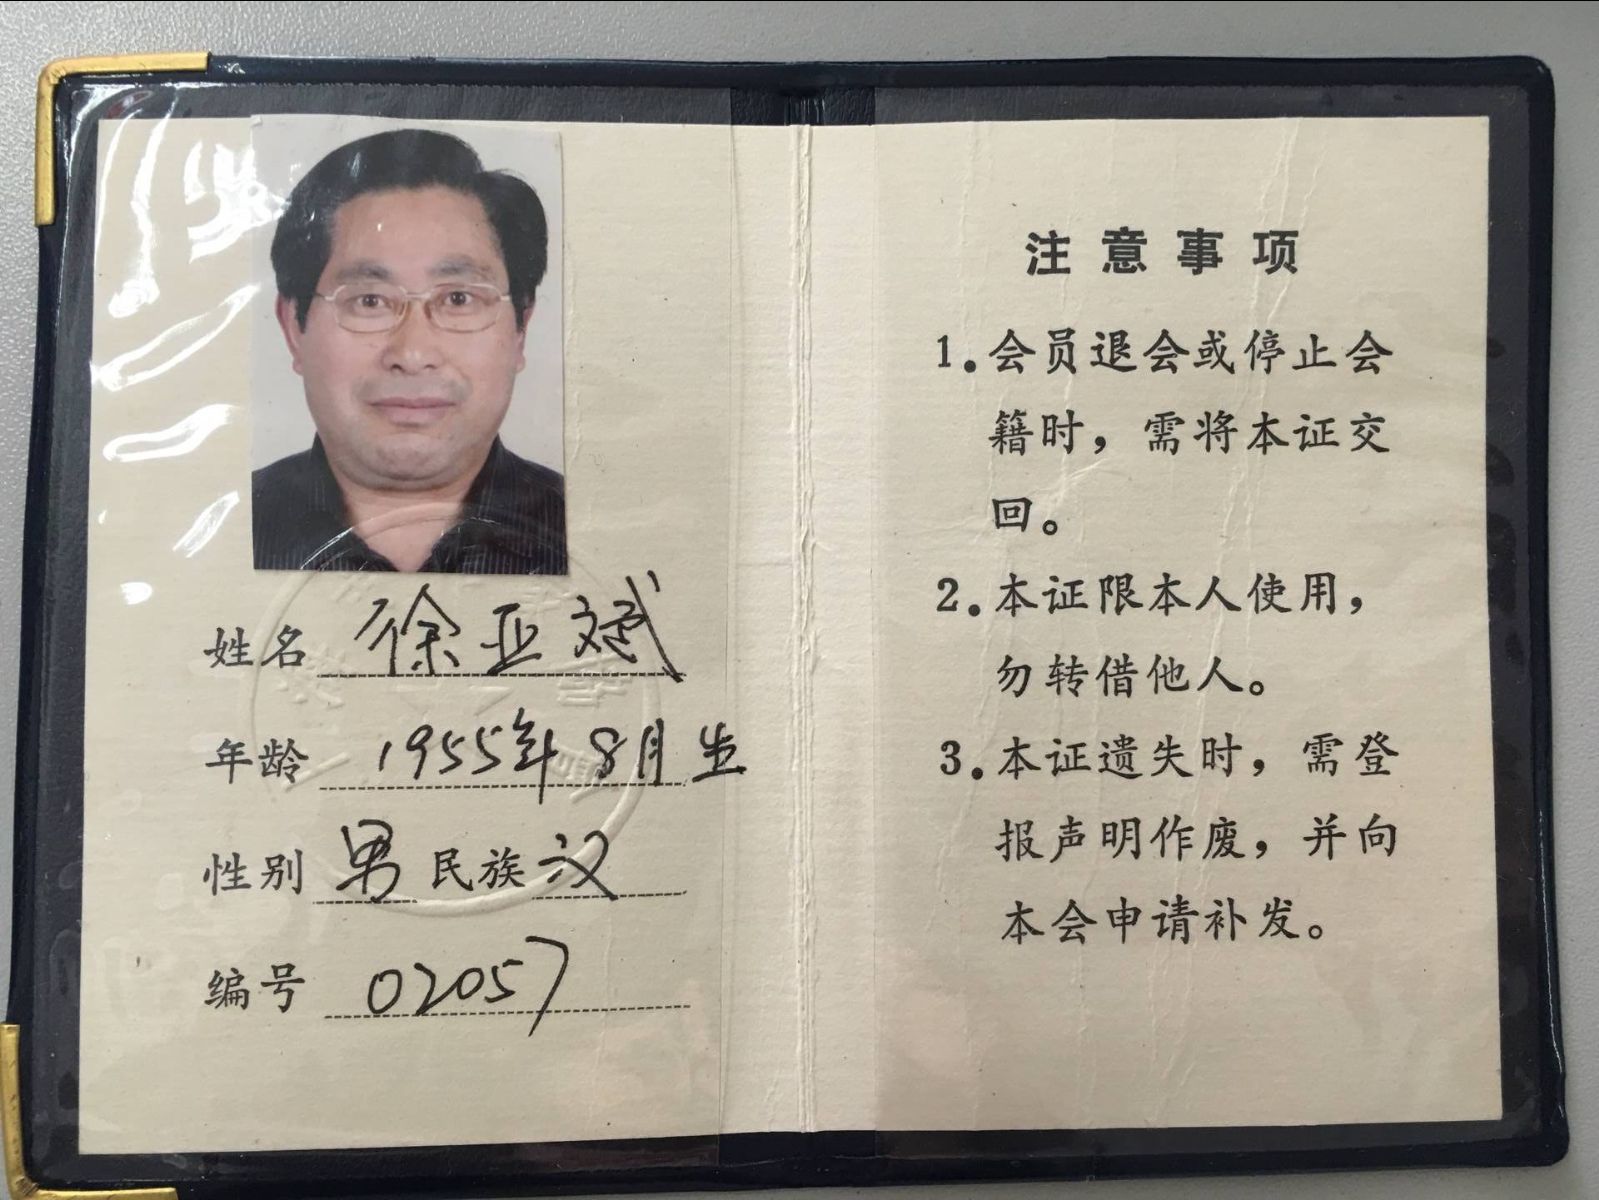 姓名 徐亚斌
年龄 1955年8月生
性别 男 民族 汉
编号 02057
注意事项
1.会员退会或停止会
籍时，需将本证交
回。
2.本证限本人使用，
勿转借他人。
3.本证遗失时，需登
报声明作废，并向
本会申请补发。